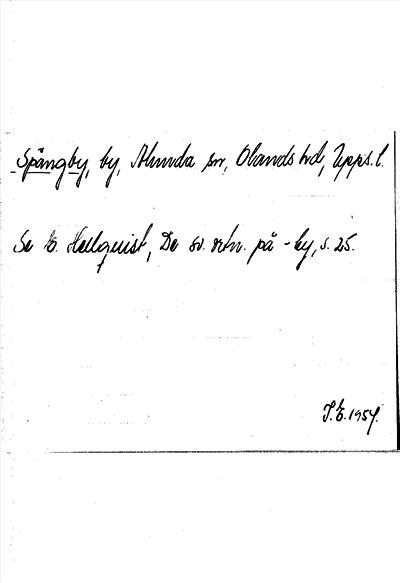 Spångby, by, Alunda sn, Olands hd, Upps. l.
Se E. Hellquist, De sv. ortn. på -by, s. 25.
I.E. 1954.